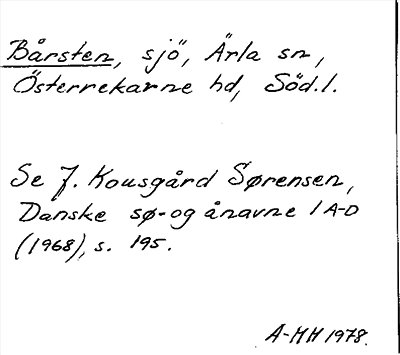 Bårsten, sjö, Ärla sn,
Österrekarne hd, Söd.l.
Se J. Kousgård Sørensen,
Danske sø- og ånavne 1 A-D
(1968), s. 195.
A-MH 1978.